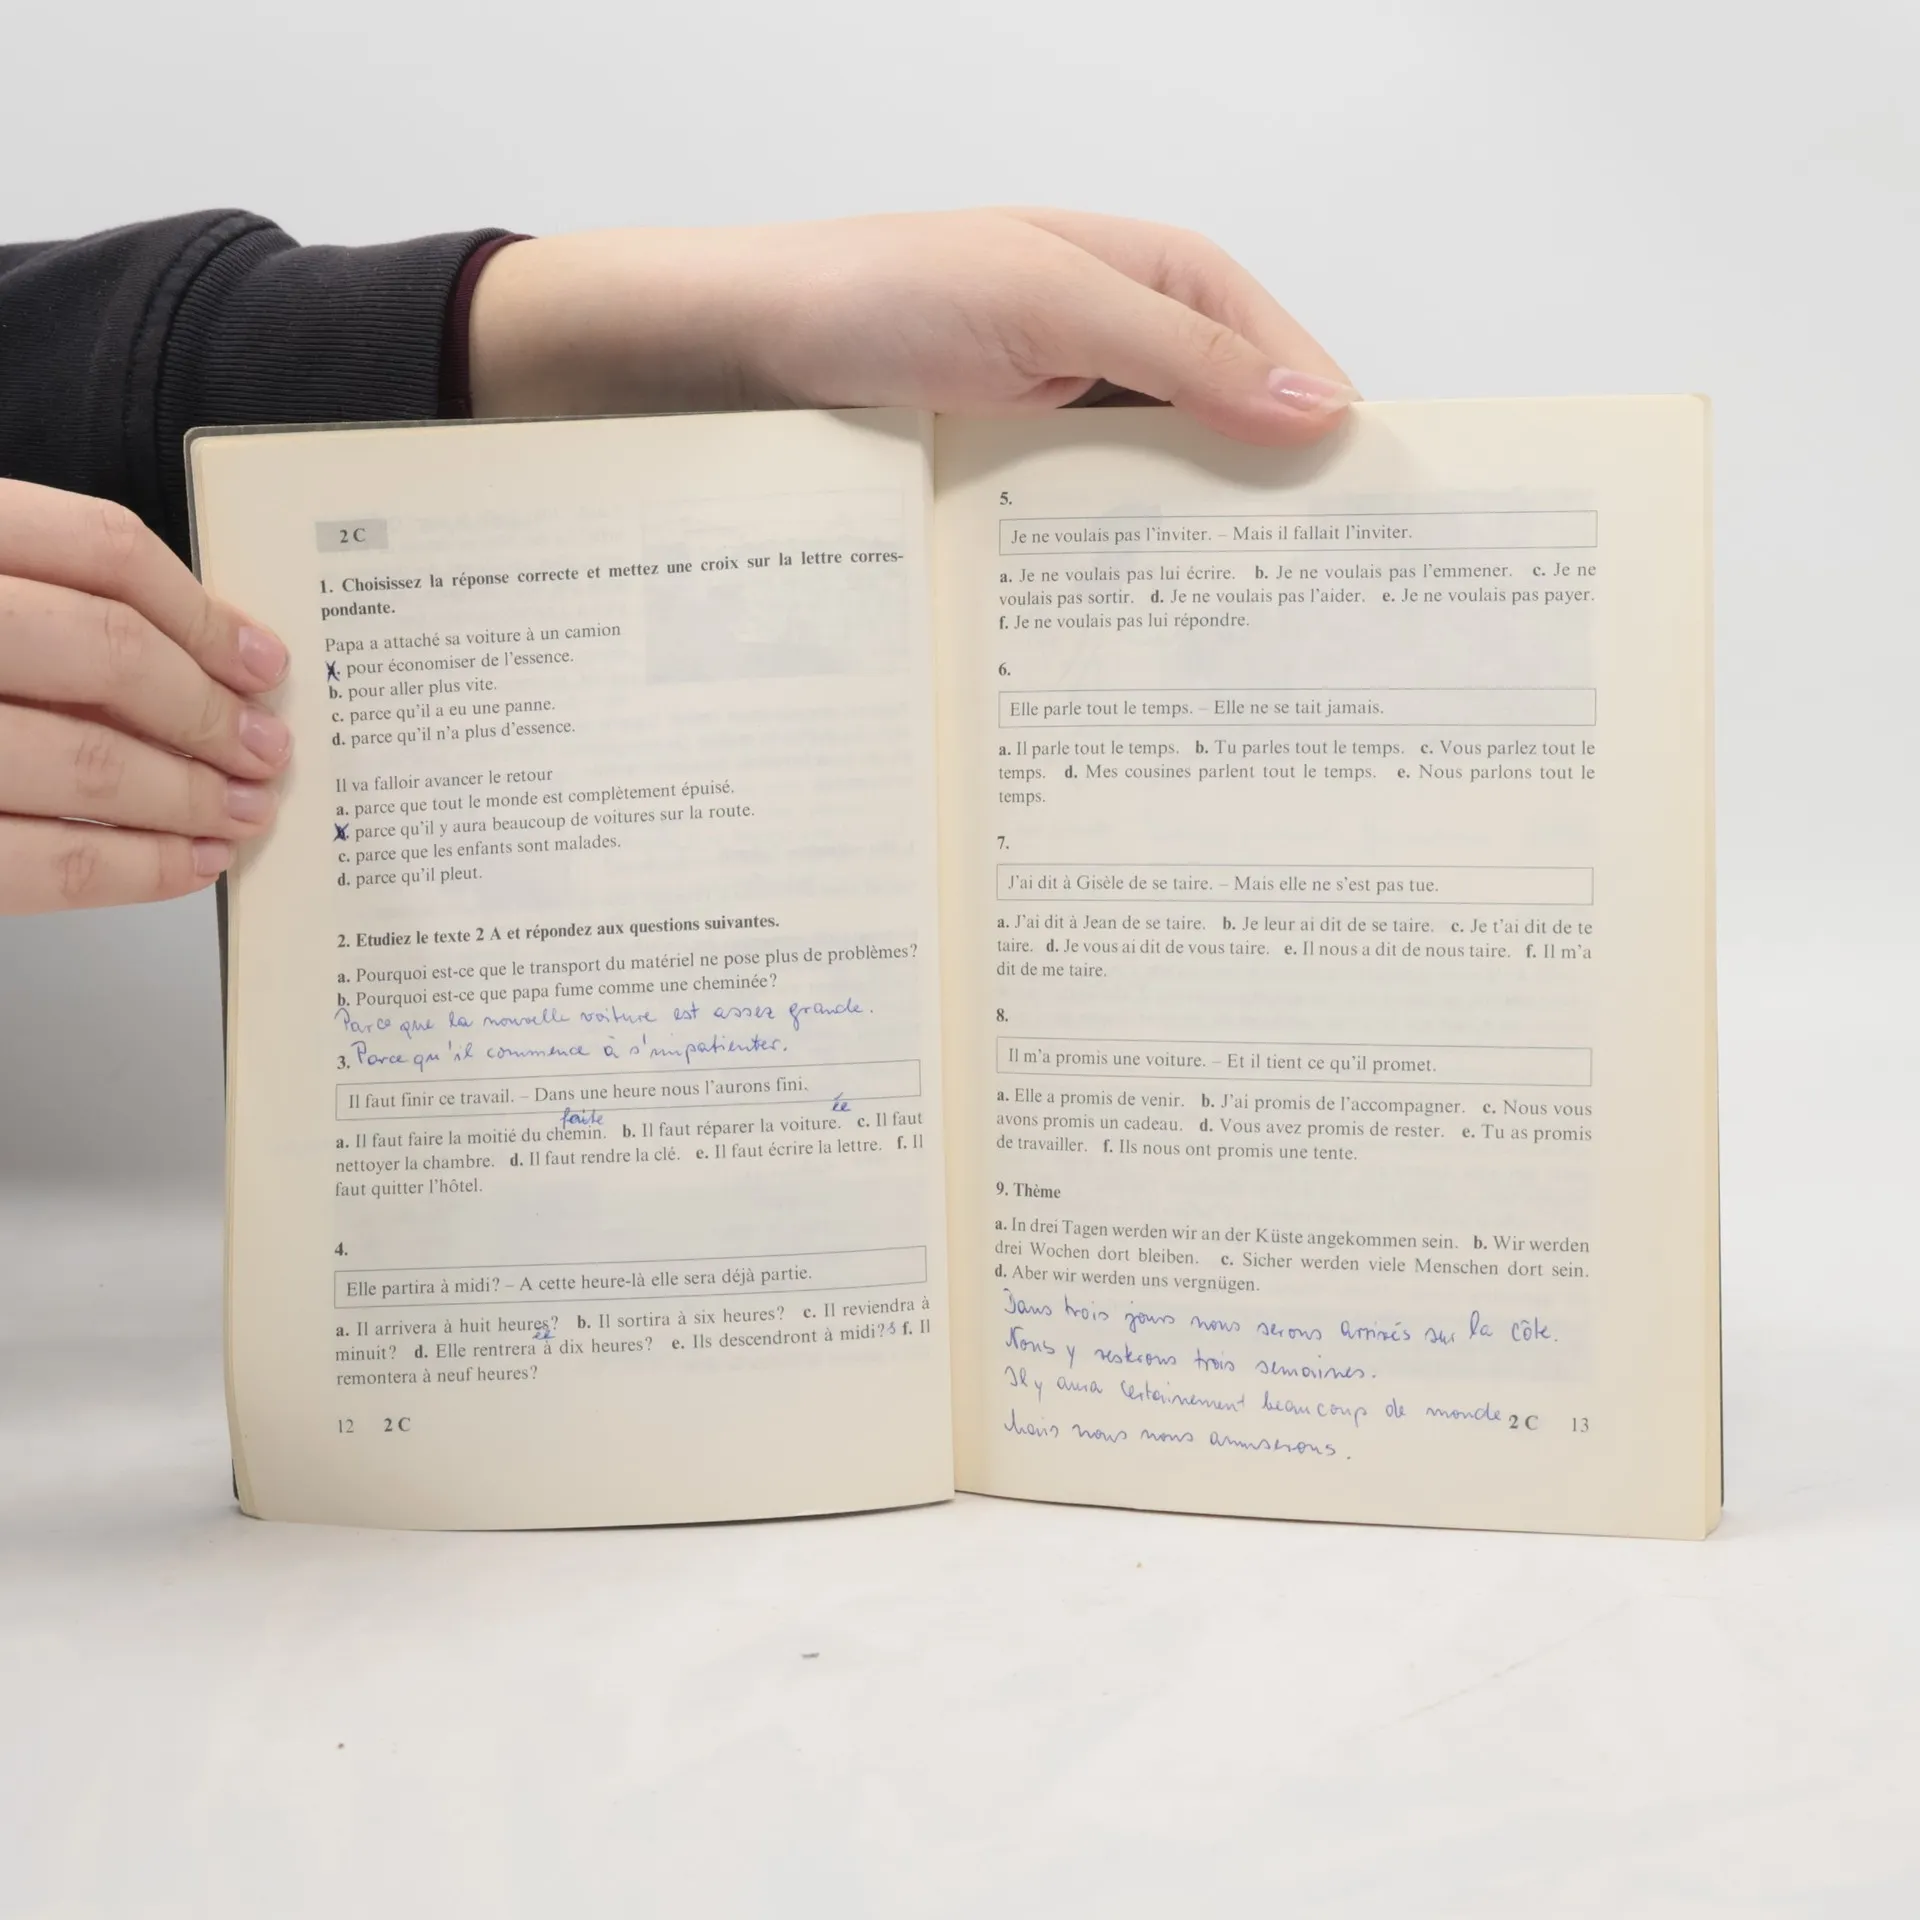 2 C
1. Choisissez la réponse correcte et mettez une croix sur la lettre corres-
pondante.
Papa a attaché sa voiture à un camion
a. pour économiser de l'essence.
b. pour aller plus vite.
c. parce qu'il a eu une panne.
d. parce qu'il n'a plus d'essence.
Il va falloir avancer le retour
a. parce que tout le monde est complètement épuisé.
b. parce qu'il y aura beaucoup de voitures sur la route.
c. parce que les enfants sont malades.
d. parce qu'il pleut.
2. Etudiez le texte 2 A et répondez aux questions suivantes.
a. Pourquoi est-ce que le transport du matériel ne pose plus de problèmes?
b. Pourquoi est-ce que papa fume comme une cheminée?
Parce que la nouvelle voiture est assez grande.
3. Parce qu'il commence à s'impatienter.
Il faut finir ce travail. – Dans une heure nous l'aurons fini.
faite ée
a. Il faut faire la moitié du chemin. b. Il faut réparer la voiture. c. Il faut
nettoyer la chambre. d. Il faut rendre la clé. e. Il faut écrire la lettre. f. Il
faut quitter l'hôtel.
4.
Elle partira à midi? – A cette heure-là elle sera déjà partie.
a. Il arrivera à huit heures? b. Il sortira à six heures? c. Il reviendra à
ée
minuit? d. Elle rentrera à dix heures? e. Ils descendront à midi? s f. Il
remontera à neuf heures?
12 2 C
5.
Je ne voulais pas l'inviter. – Mais il fallait l'inviter.
a. Je ne voulais pas lui écrire. b. Je ne voulais pas l'emmener. c. Je ne
voulais pas sortir. d. Je ne voulais pas l'aider. e. Je ne voulais pas payer.
f. Je ne voulais pas lui répondre.
6.
Elle parle tout le temps. – Elle ne se tait jamais.
a. Il parle tout le temps. b. Tu parles tout le temps. c. Vous parlez tout le
temps. d. Mes cousines parlent tout le temps. e. Nous parlons tout le
temps.
7.
J'ai dit à Gisèle de se taire. – Mais elle ne s'est pas tue.
a. J'ai dit à Jean de se taire. b. Je leur ai dit de se taire. c. Je t'ai dit de te
taire. d. Je vous ai dit de vous taire. e. Il nous a dit de nous taire. f. Il m'a
dit de me taire.
8.
Il m'a promis une voiture. – Et il tient ce qu'il promet.
a. Elle a promis de venir. b. J'ai promis de l'accompagner. c. Nous vous
avons promis un cadeau. d. Vous avez promis de rester. e. Tu as promis
de travailler. f. Ils nous ont promis une tente.
9. Thème
a. In drei Tagen werden wir an der Küste angekommen sein. b. Wir werden
drei Wochen dort bleiben. c. Sicher werden viele Menschen dort sein.
d. Aber wir werden uns vergnügen.
Dans trois jours nous serons arrivés sur la côte.
Nous y resterons trois semaines.
Il y aura certainement beaucoup de monde
Mais nous nous amuserons.
2 C 13